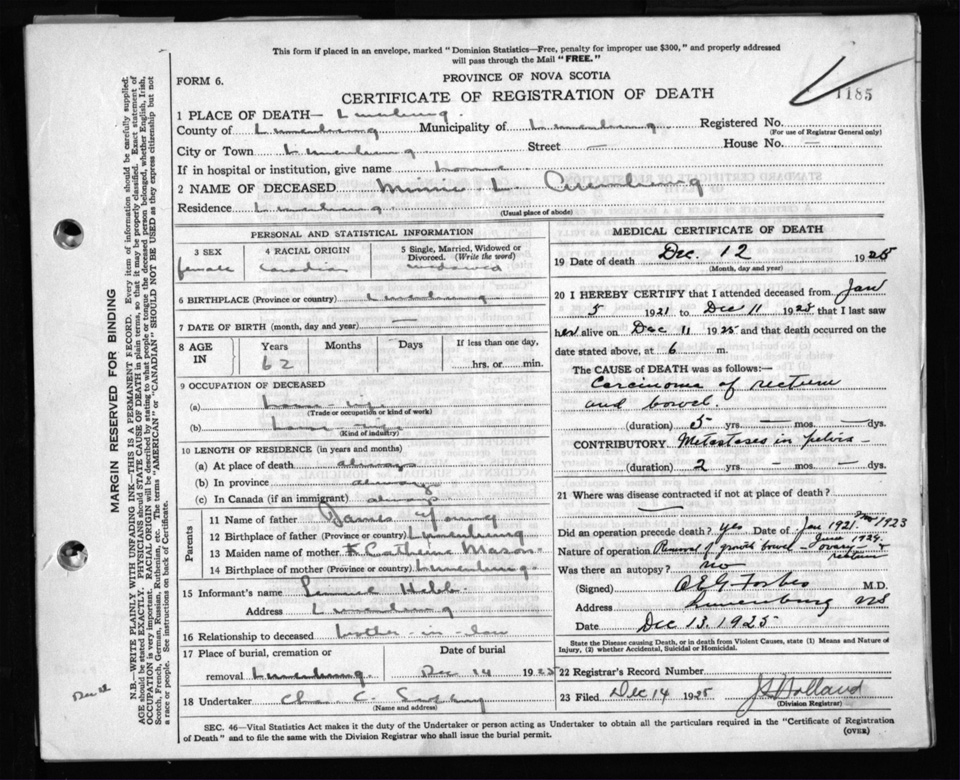 This form if placed in an envelope, marked "Dominion Statistics—Free, penalty for improper use $300," and properly addressed
will pass through the Mail "FREE."
FORM 6.
PROVINCE OF NOVA SCOTIA
CERTIFICATE OF REGISTRATION OF DEATH
1185
1 PLACE OF DEATH— Lunenburg
County of Lunenburg Municipality of Lunenburg Registered No.
(For use of Registrar General only)
City or Town Lunenburg Street — House No. —
If in hospital or institution, give name
2 NAME OF DECEASED Minnie L.
Residence Lunenburg
(Usual place of abode)
PERSONAL AND STATISTICAL INFORMATION
3 SEX 4 RACIAL ORIGIN 5 Single, Married, Widowed or Divorced. (Write the word)
female Canadian widowed
6 BIRTHPLACE (Province or country) Lunenburg
7 DATE OF BIRTH (month, day and year) —
8 AGE IN Years Months Days If less than one day,
62 hrs. or min.
9 OCCUPATION OF DECEASED
(a) house wife
(Trade or occupation or kind of work)
(b) house wife
(Kind of industry)
10 LENGTH OF RESIDENCE (in years and months)
(a) At place of death always
(b) In province always
(c) In Canada (if an immigrant) always
Parents
11 Name of father James Young
12 Birthplace of father (Province or country) Lunenburg
13 Maiden name of mother Catherine Mason
14 Birthplace of mother (Province or country) Lunenburg
15 Informant's name Lemuel Hebb
Address Lunenburg
16 Relationship to deceased brother-in-law
17 Place of burial, cremation or Date of burial
removal Lunenburg Dec 14 1925
18 Undertaker Chas. C.
(Name and address)
MEDICAL CERTIFICATE OF DEATH
19 Date of death Dec. 12 1925
(Month, day and year)
20 I HEREBY CERTIFY that I attended deceased from Jan
5 1921 to Dec 11 1925, that I last saw
her alive on Dec 11 1925 and that death occurred on the
date stated above, at 6 m.
The CAUSE of DEATH was as follows:—
Carcinoma of rectum
and bowel.
(duration) 5 yrs. — mos. — dys.
CONTRIBUTORY Metastases in pelvis
(duration) 2 yrs. — mos. — dys.
21 Where was disease contracted if not at place of death?
Did an operation precede death? yes Date of Jan 1921. 1923
June 1924.
Nature of operation Removal of growth bowel — ovary
rectum
Was there an autopsy? no
(Signed) Forbes M.D.
Address Lunenburg NS
Date Dec 13, 1925
State the Disease causing Death, or in death from Violent Causes, state (1) Means and Nature of
Injury, (2) whether Accidental, Suicidal or Homicidal.
22 Registrar's Record Number
23 Filed Dec 14 1925 Holland
(Division Registrar)
SEC. 46—Vital Statistics Act makes it the duty of the Undertaker or person acting as Undertaker to obtain all the particulars required in the "Certificate of Registration
of Death" and to file the same with the Division Registrar who shall issue the burial permit.
(OVER)
MARGIN RESERVED FOR BINDING
N.B.—WRITE PLAINLY WITH UNFADING INK—THIS IS A PERMANENT RECORD. Every item of information should be carefully supplied.
AGE should be stated EXACTLY. PHYSICIANS should STATE CAUSE OF DEATH in plain terms, so that it may be properly classified. Exact statement of
OCCUPATION is very important. RACIAL ORIGIN will be described by stating to what people or tongue the deceased person belonged, whether English, Irish,
Scotch, French, German, Russian, Ruthenian, etc. The terms "AMERICAN" or "CANADIAN" SHOULD NOT BE USED as they express citizenship but not
a race or people. See instructions on back of Certificate.